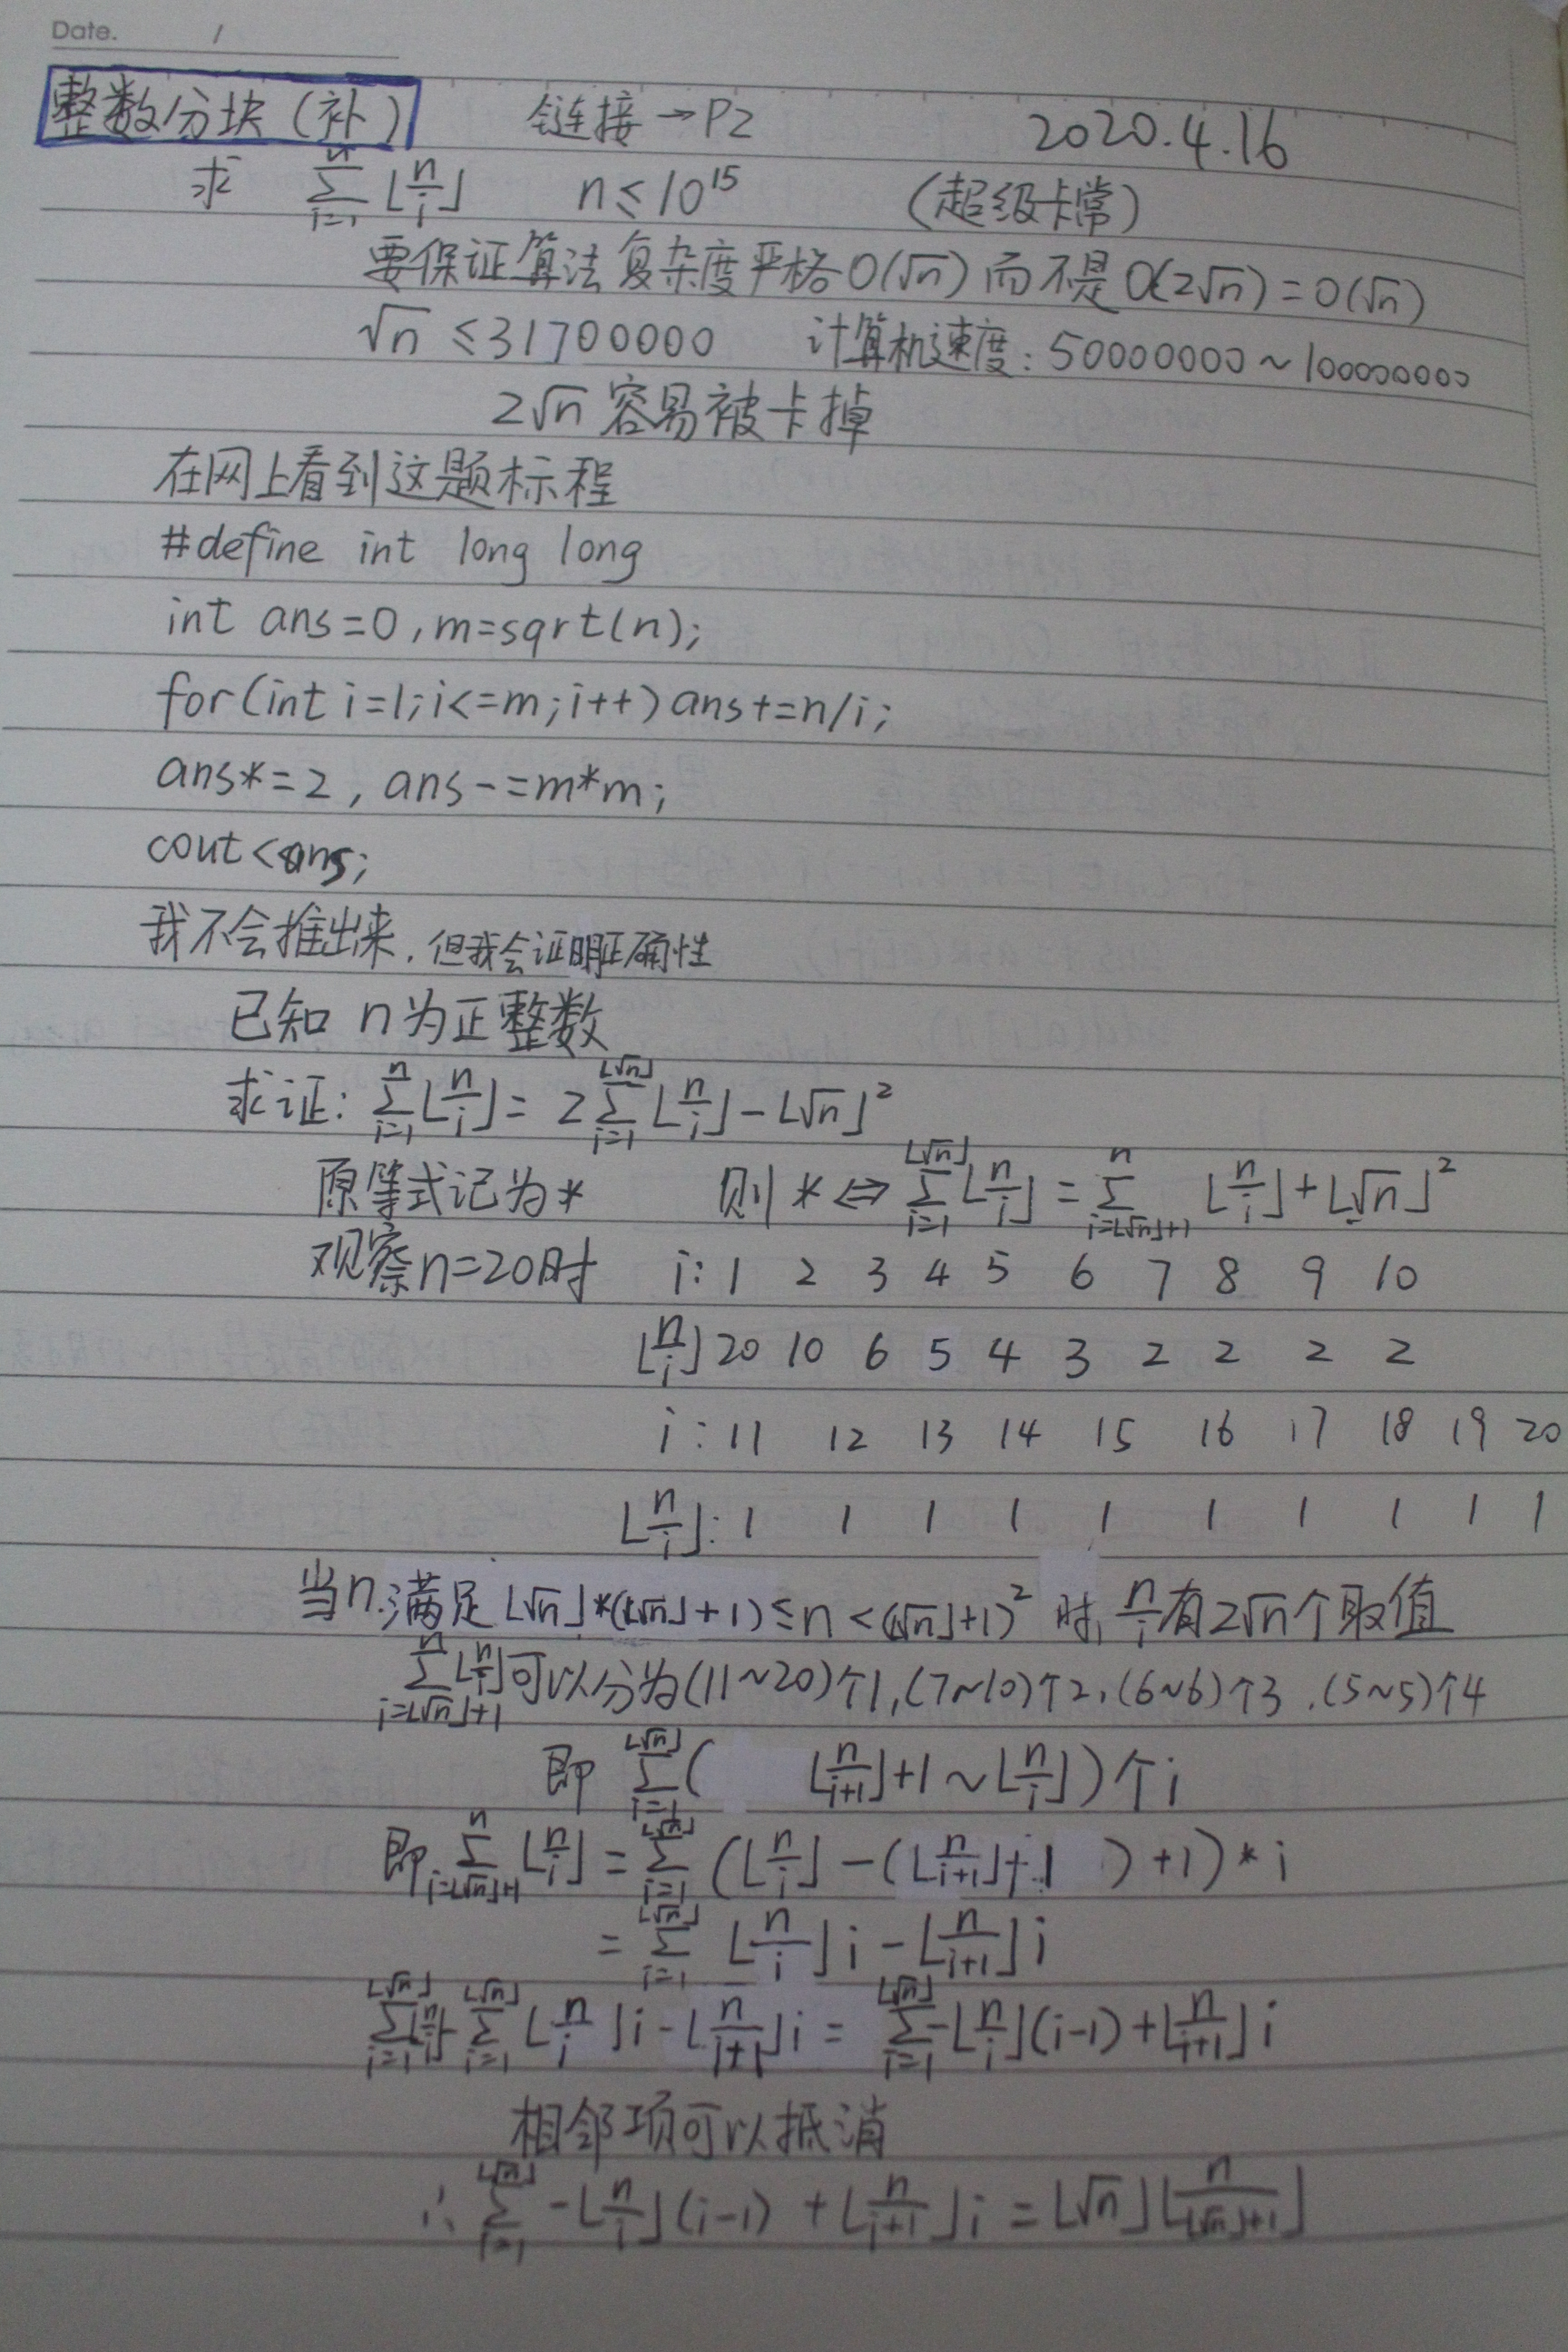 Date. /
整数分块(补) 链接→P2 2020.4.16
求 \sum_{i=1}^{n} ⌊\frac{n}{i}⌋ n≤10^{15} (超级卡常)
要保证算法复杂度严格O(√n)而不是O(2√n)=O(√n)
√n ≤31700000 计算机速度:50000000~100000000
2√n容易被卡掉
在网上看到这题标程
#define int long long
int ans=0,m=sqrt(n);
for(int i=1;i<=m;i++)ans+=n/i;
ans*=2,ans-=m*m;
cout<ans;
我不会推出来,但我会证明正确性
已知 n为正整数
求证: \sum_{i=1}^{n}⌊\frac{n}{i}⌋= 2\sum_{i=1}^{⌊√n⌋}⌊\frac{n}{i}⌋-⌊√n⌋^2
原等式记为* 则*⇔\sum_{i=1}^{⌊√n⌋}⌊\frac{n}{i}⌋=\sum_{i=⌊√n⌋+1}^{n}⌊\frac{n}{i}⌋+⌊√n⌋^2
观察n=20时 i: 1 2 3 4 5 6 7 8 9 10
⌊\frac{n}{i}⌋ 20 10 6 5 4 3 2 2 2 2
i: 11 12 13 14 15 16 17 18 19 20
⌊\frac{n}{i}⌋: 1 1 1 1 1 1 1 1 1 1
当n.满足⌊√n⌋*(⌊√n⌋+1)≤n<(⌊√n⌋+1)^2时,\frac{n}{i}有2√n个取值
\sum_{i=⌊√n⌋+1}^{n}⌊\frac{n}{i}⌋可以分为(11~20)个1,(7~10)个2,(6~6)个3,(5~5)个4
即 \sum_{i=1}^{⌊√n⌋}(⌊\frac{n}{i+1}⌋+1~⌊\frac{n}{i}⌋)个i
即\sum_{i=⌊√n⌋+1}^{n}⌊\frac{n}{i}⌋=\sum_{i=1}^{⌊√n⌋}(⌊\frac{n}{i}⌋-(⌊\frac{n}{i+1}⌋+1)+1)*i
=\sum_{i=1}^{⌊√n⌋}⌊\frac{n}{i}⌋i-⌊\frac{n}{i+1}⌋i
\sum_{i=1}^{⌊√n⌋}⌊\frac{n}{i}⌋-\sum_{i=1}^{⌊√n⌋}⌊\frac{n}{i}⌋i-⌊\frac{n}{i+1}⌋i=\sum_{i=1}^{⌊√n⌋}-⌊\frac{n}{i}⌋(i-1)+⌊\frac{n}{i+1}⌋i
相邻项可以抵消
∴\sum_{i=1}^{⌊√n⌋}-⌊\frac{n}{i}⌋(i-1)+⌊\frac{n}{i+1}⌋i=⌊√n⌋⌊\frac{n}{⌊√n⌋+1}⌋